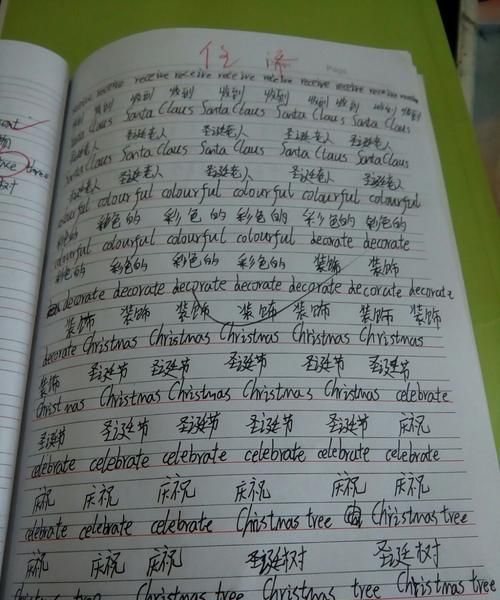 Page
receive receive receive receive receive receive receive receive
收到 收到 收到 收到 收到 收到 收到
Santa Claus Santa Claus Santa Claus Santa Claus
圣诞老人 圣诞老人 圣诞老人 圣诞老人
Santa Claus Santa Claus Santa Claus Santa Claus
圣诞老人 圣诞老人 圣诞老人 圣诞老人
colourful colourful colourful colourful colourful
彩色的 彩色的 彩色的 彩色的 彩色的 彩色的
colourful colourful colourful colourful decorate decorate
彩色的 彩色的 彩色的 彩色的 装饰 装饰
decorate decorate decorate decorate decorate decorate decorate
装饰 装饰 装饰 装饰 装饰 装饰 装饰
decorate Christmas Christmas Christmas Christmas Christmas
装饰 圣诞节 圣诞节 圣诞节 圣诞节 圣诞节
Christmas Christmas Christmas Christmas Christmas celebrate
圣诞节 圣诞节 圣诞节 圣诞节 圣诞节 庆祝
celebrate celebrate celebrate celebrate celebrate celebrate
庆祝 庆祝 庆祝 庆祝 庆祝 庆祝
celebrate celebrate celebrate Christmas tree Christmas tree
庆祝 庆祝 庆祝 圣诞树 圣诞树
Christmas tree Christmas tree Christmas tree Christmas tree